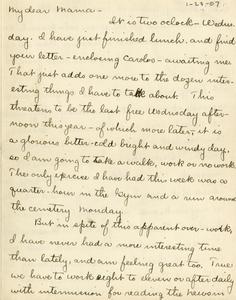 1-23-07.
My dear Mama-
It is two oclock - Wednes-
day. I have just finished lunch, and find
your letter - enclosing Carolos - awaiting me.
That just adds one more to the dozen inter-
esting things I have to talk about. This
threatens to be the last free Wednesday after-
noon this year - of which more later; it is
a glorious bitter-cold bright and windy day,
so I am going to take a walk, work or no work.
The only exercise I have had this week was a
quarter-hour in the Gym and a run around
the cemetery Monday.
But in spite of this apparent over-work,
I have never had a more interesting time
than lately, and am feeling great too. True
we have to work eight to eleven or after daily
with intermission for reading the